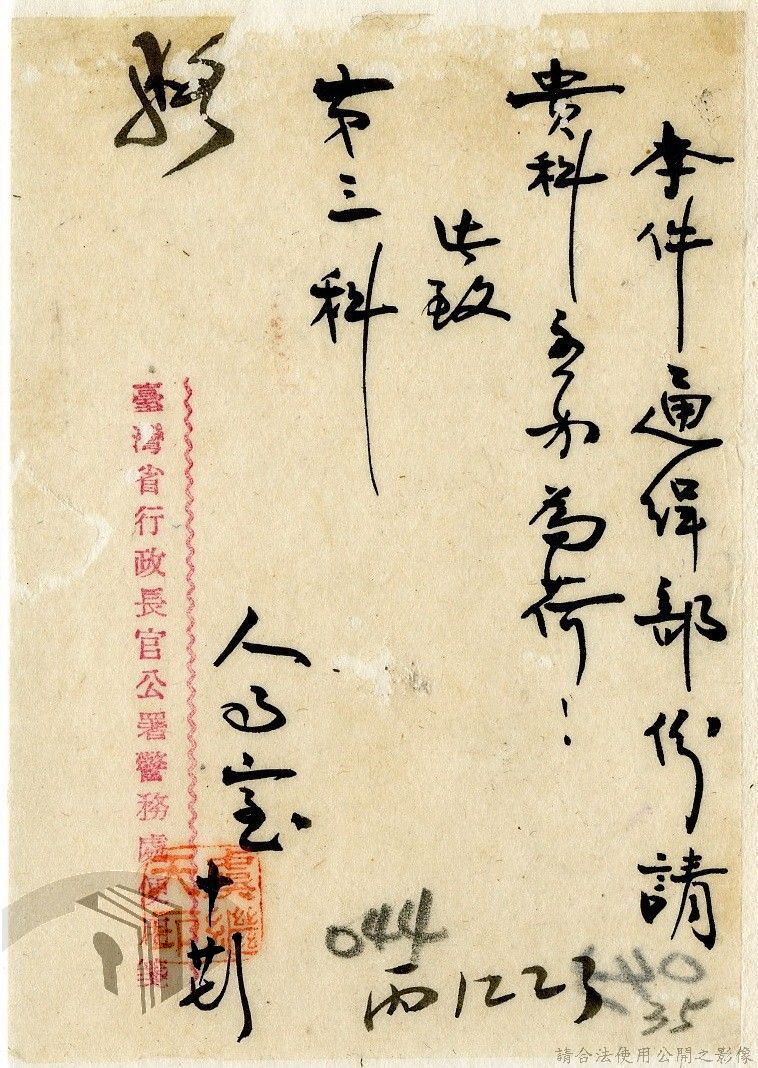 本件通緝部份請
貴科主办為荷！
此致
第三科
人事室
臺灣省行政長官公署警務處便用箋
044
丙1223
35
請合法使用公開之影像